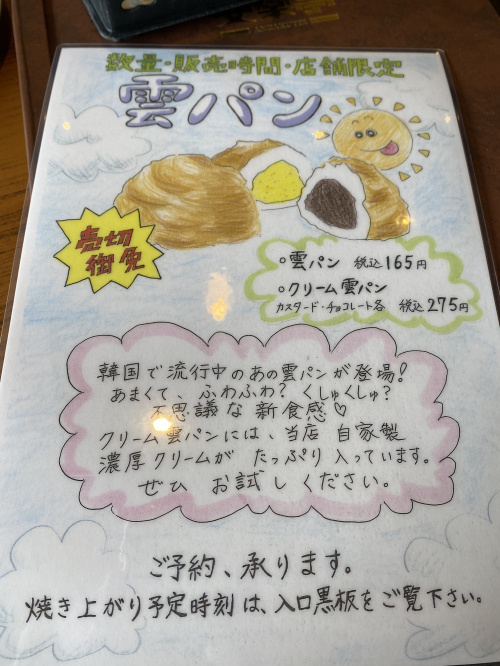 数量・販売時間・店舗限定
雲パン
売切
御免
○雲パン 税込165円
○クリーム雲パン
カスタード・チョコレート各 税込275円
韓国で流行中のあの雲パンが登場!
あまくて、ふわふわ?くしゅくしゅ?
不思議な新食感♡
クリーム雲パンには、当店 自家製
濃厚クリームが たっぷり入っています。
ぜひ お試しください。
ご予約、承ります。
焼き上がり予定時刻は、入口黒板をご覧下さい。